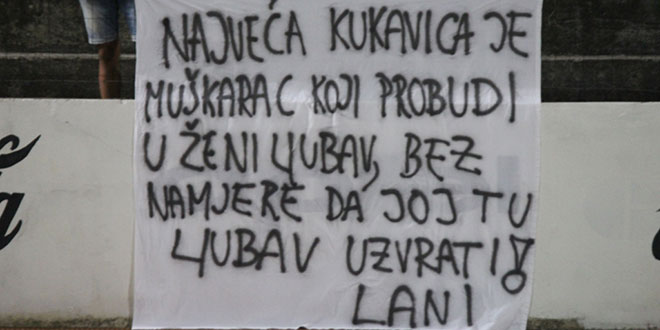 NAJVEĆA KUKAVICA JE
MUŠKARAC KOJI PROBUDI
U ŽENI LJUBAV, BEZ
NAMJERE DA JOJ TU
LJUBAV UZVRATI!
LANI